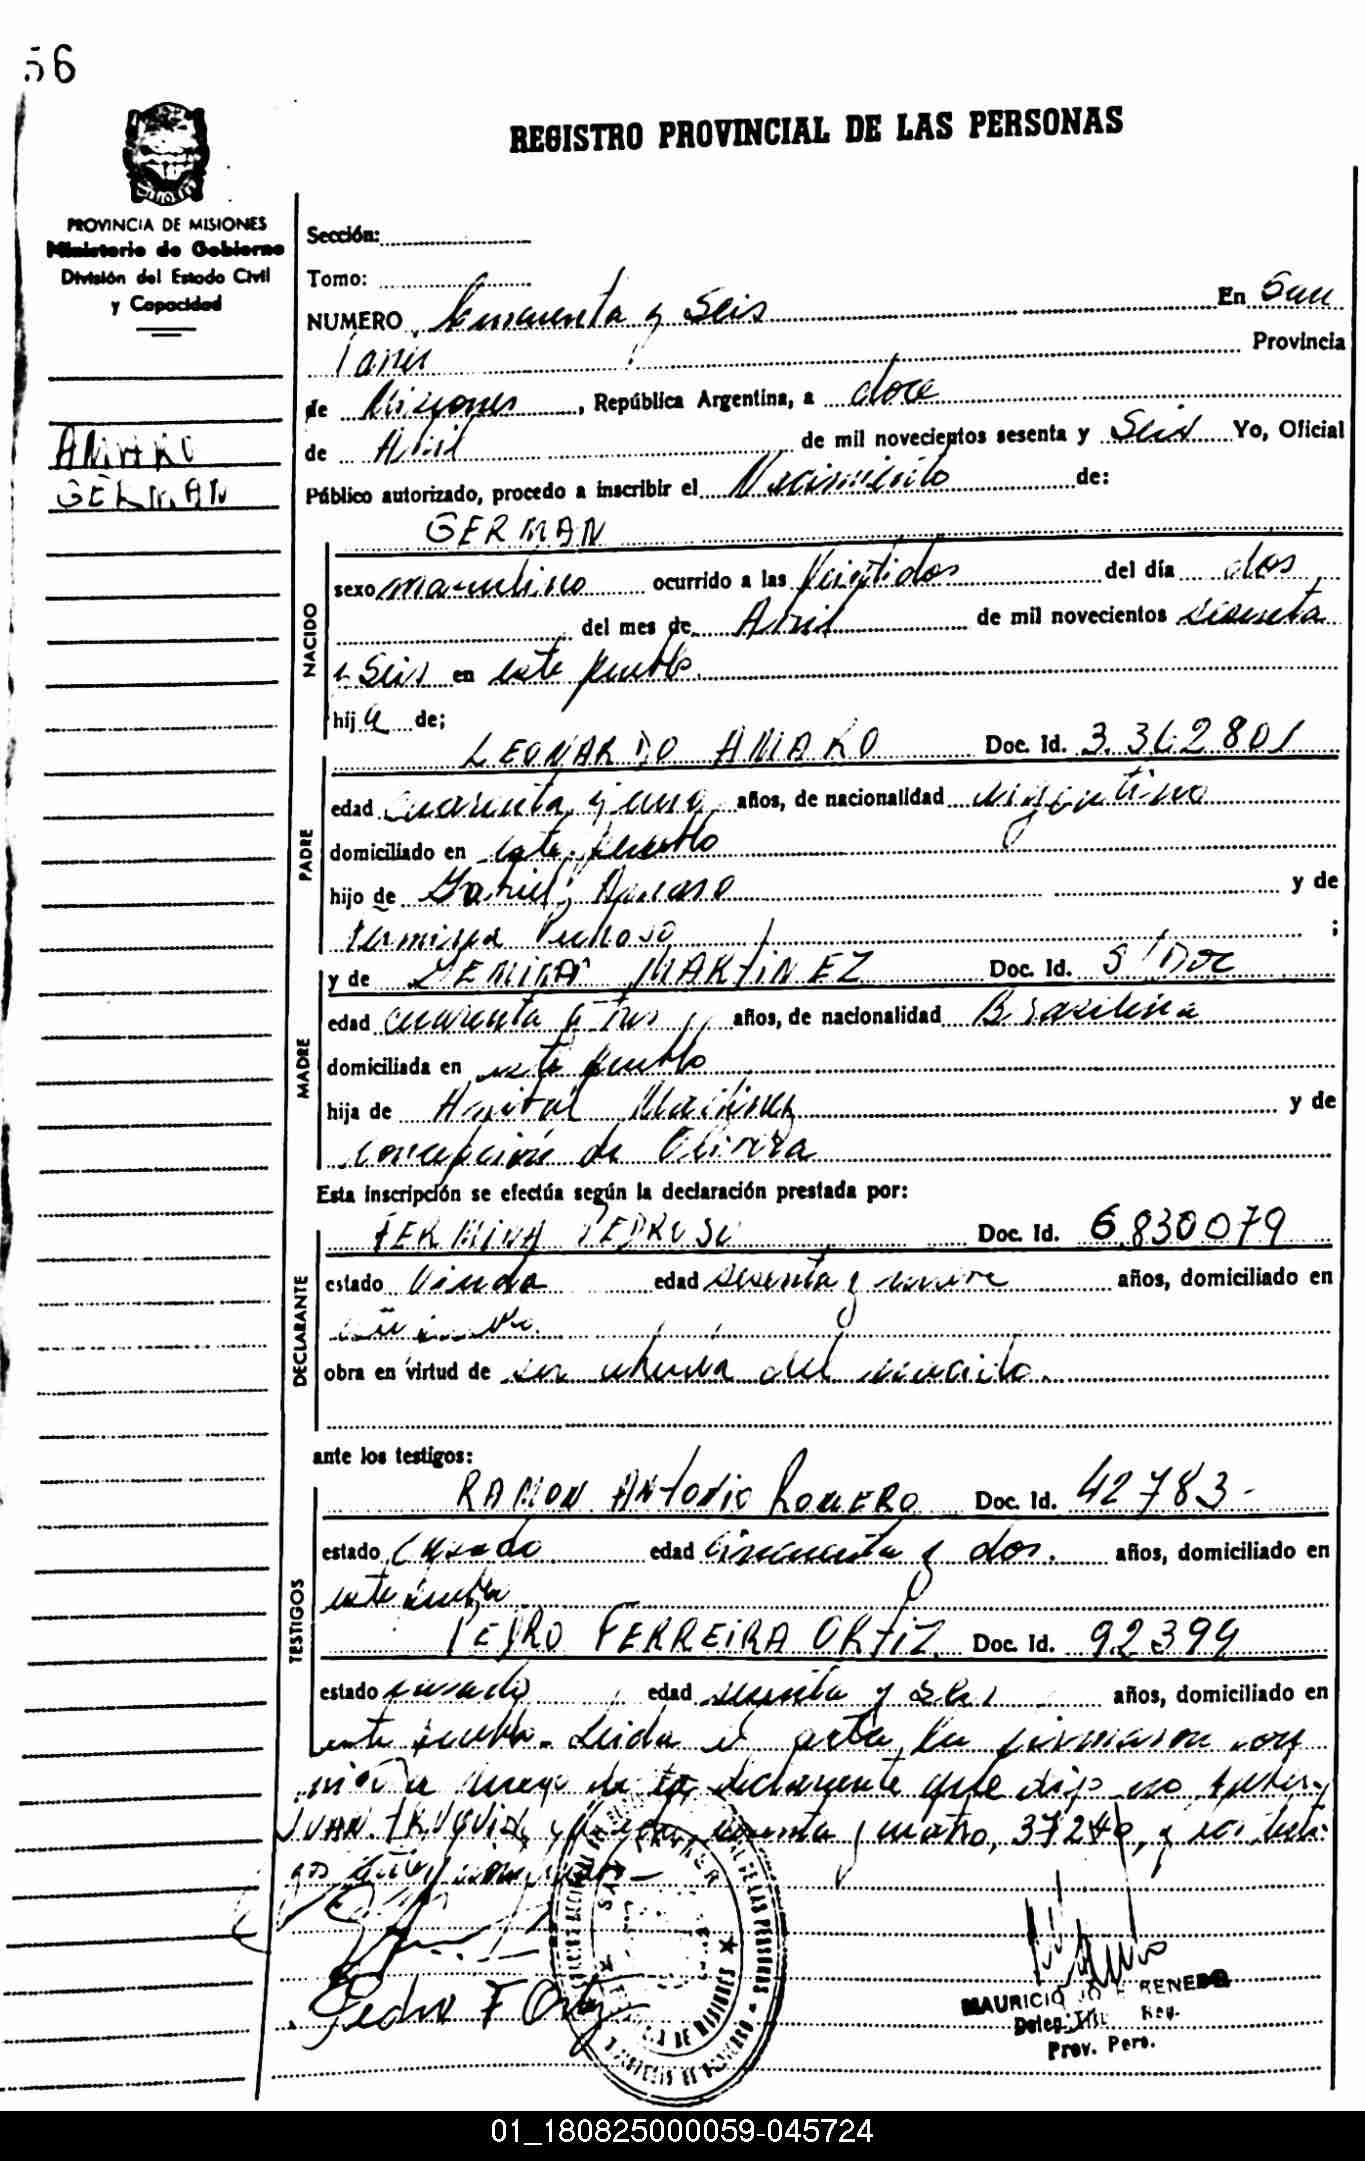 56
REGISTRO PROVINCIAL DE LAS PERSONAS
PROVINCIA DE MISIONES
Ministerio de Gobierno
División del Estado Civil
y Capacidad
AMARO
GERMAN
Sección:
Tomo:
NUMERO Cincuenta y Seis En San
Javier Provincia
de Misiones, República Argentina, a doce
de Abril de mil novecientos sesenta y Seis Yo, Oficial
Público autorizado, procedo a inscribir el Nacimiento de:
GERMAN
NACIDO
sexo masculino ocurrido a las Veintidos del día dos
del mes de Abril de mil novecientos sesenta
y Seis en este pueblo.
hij o de;
PADRE
LEONARDO AMARO Doc. Id. 3.362801
edad cuarenta y uno años, de nacionalidad argentino
domiciliado en este pueblo
hijo de Gabriel Amaro y de
Fermina Pedroso ;
MADRE
y de MARTINEZ Doc. Id. S/Doc
edad cuarenta y tres años, de nacionalidad Brasileña
domiciliada en este pueblo
hija de Anibal Martinez y de
Concepción de Oliveira
Esta inscripción se efectúa según la declaración prestada por:
DECLARANTE
FERMINA PEDROSO Doc. Id. 6.830079
estado Viuda edad sesenta y nueve años, domiciliado en
obra en virtud de ser abuela del nacido.
ante los testigos:
TESTIGOS
RAMON ANTONIO ROMERO Doc. Id. 42783-
estado Casado edad Cincuenta y dos. años, domiciliado en
este pueblo
PEDRO FERREIRA ORTIZ. Doc. Id. 92399
estado casado edad sesenta y seis años, domiciliado en
este pueblo. Leida el acta, la firmaron con
migo a ruego de la declarante que dijo no saber,
JUAN y cuatro, 37240, y los testi
gos
Pedro F Ortiz
SAN JAVIER
DE LAS PERSONAS
DE MISIONES
MAURICIO JO E RENEDO
Deleg. Reg.
Prov. Pers.
01_180825000059-045724